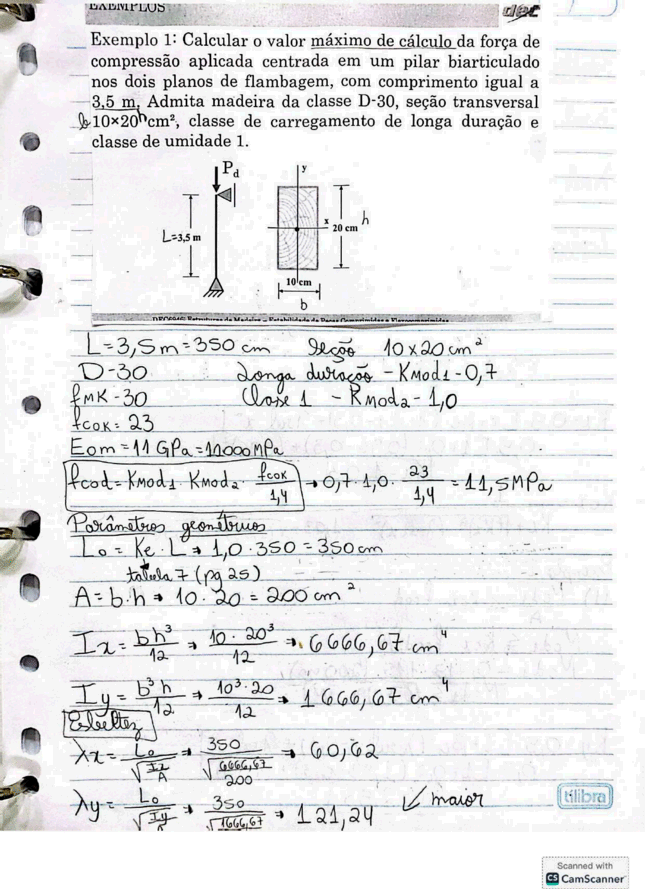 EXEMPLOS
dec
Exemplo 1: Calcular o valor máximo de cálculo da força de
compressão aplicada centrada em um pilar biarticulado
nos dois planos de flambagem, com comprimento igual a
3,5 m. Admita madeira da classe D-30, seção transversal
b 10×20 h cm², classe de carregamento de longa duração e
classe de umidade 1.
Pd
y
L=3,5 m
x
20 cm h
10 cm
b
DEC8646: Estruturas de Madeira – Estabilidade de Peças Comprimidas e Flexocomprimidas
L=3,5m=350 cm Seção 10x20 cm²
D-30 Longa duração - Kmod1 - 0,7
fmk - 30 Clase 1 - Kmod2 - 1,0
fcok= 23
Eom = 11 GPa = 11000MPa
fcod = Kmod1 · Kmod2 · fcok/1,4 → 0,7 · 1,0 · 23/1,4 = 11,5MPa
Parâmetros geométricos
Lo = Ke · L → 1,0 · 350 = 350cm
tabela 7 (pg 25)
A = b·h → 10 · 20 = 200 cm²
Ix = bh³/12 → 10 · 20³/12 → 6666,67 cm⁴
Iy = b³h/12 → 10³·20/12 → 1666,67 cm⁴
Esbeltez
λx = Lo/√(Ix/A) → 350/√(6666,67/200) → 60,62
λy = Lo/√(Iy → 350/√(1666,67 → 121,24 ↙ maior
tilibra
Scanned with
CS CamScanner